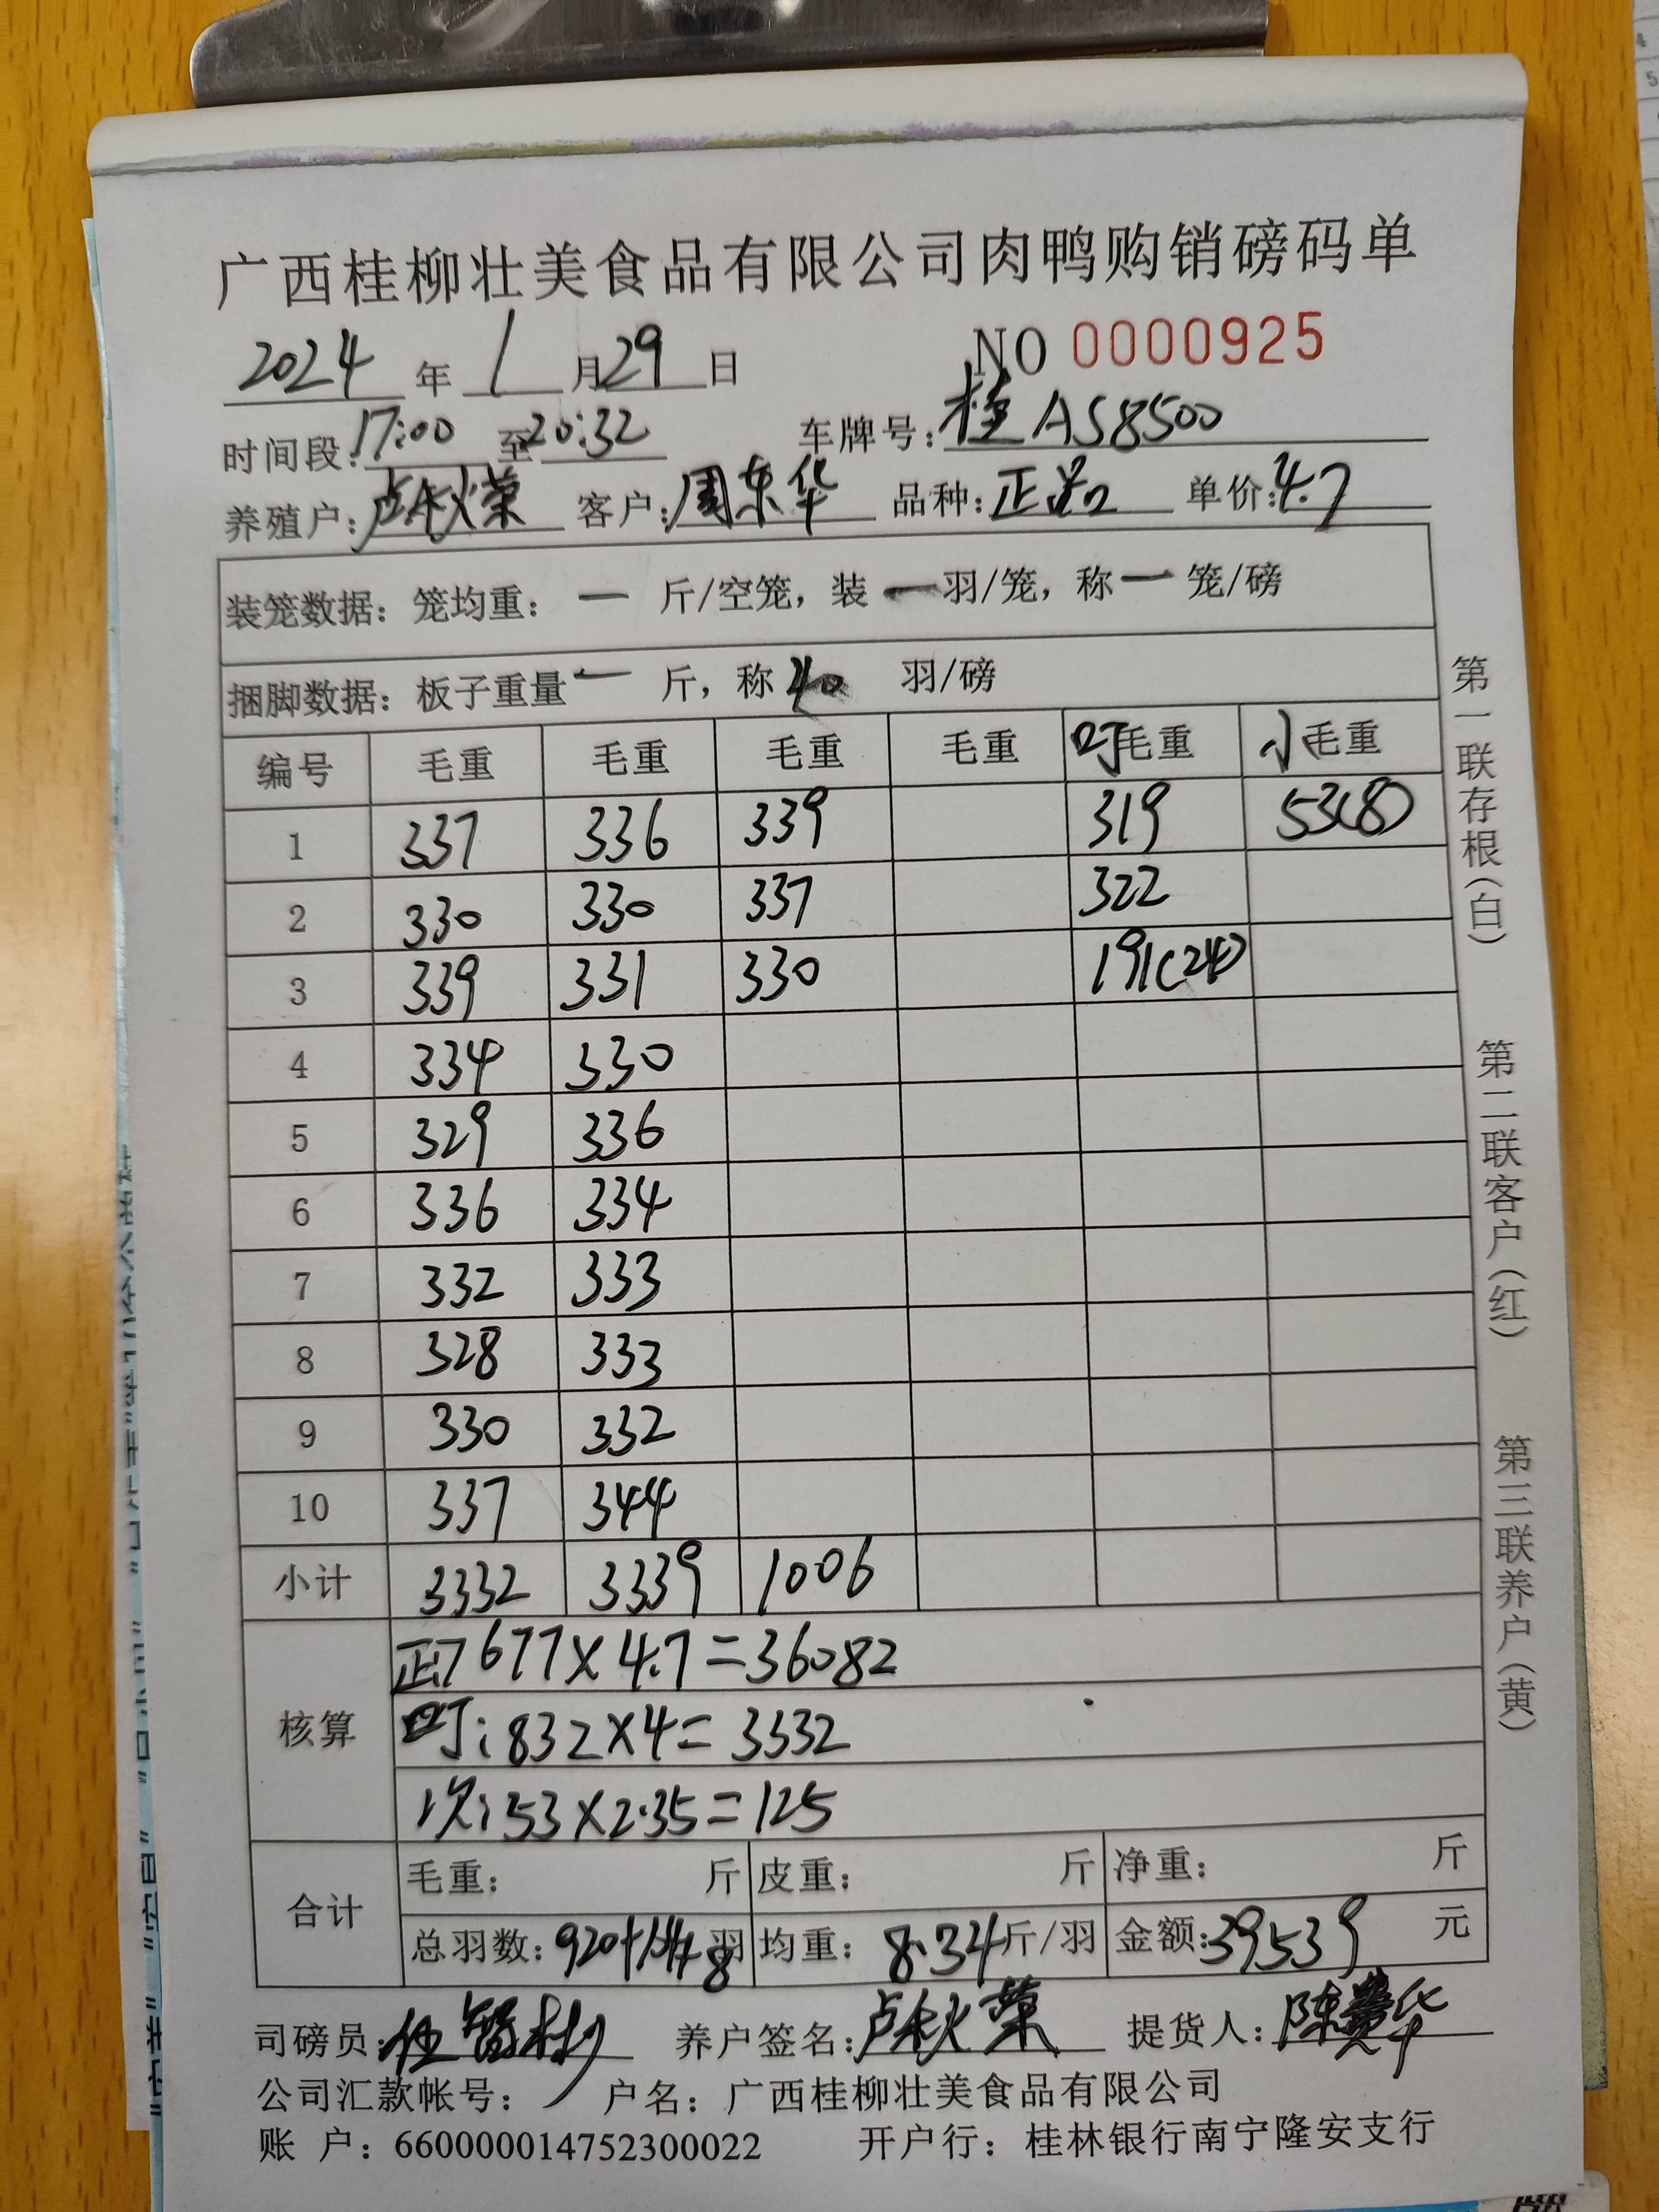 广西桂柳壮美食品有限公司肉鸭购销磅码单
2024 年 1 月 29 日 NO 0000925
时间段:17:00 至 20:32 车牌号:桂AS8500
养殖户:卢秋荣 客户:周东华 品种:正品 单价:4.7
装笼数据:笼均重:一 斤/空笼,装 一 羽/笼,称 一 笼/磅
捆脚数据:板子重量 一 斤,称 40 羽/磅
编号 毛重 毛重 毛重 毛重 叮毛重 小毛重
1 337 336 339 319 53(8)
2 330 330 337 322
3 339 331 330 191(24)
4 334 330
5 329 336
6 336 334
7 332 333
8 328 333
9 330 332
10 337 344
小计 3332 3339 1006
核算 正7677×4.7=36082
叮:832×4=3332
次:53×2.35=125
合计 毛重: 斤 皮重: 斤 净重: 斤
总羽数:920+144 8 羽 均重:8.34 斤/羽 金额:39539 元
司磅员:伍 养户签名:卢秋荣 提货人:陈 华
公司汇款帐号: 户名:广西桂柳壮美食品有限公司
账 户:660000014752300022 开户行:桂林银行南宁隆安支行
第一联存根(白)
第二联客户(红)
第三联养户(黄)